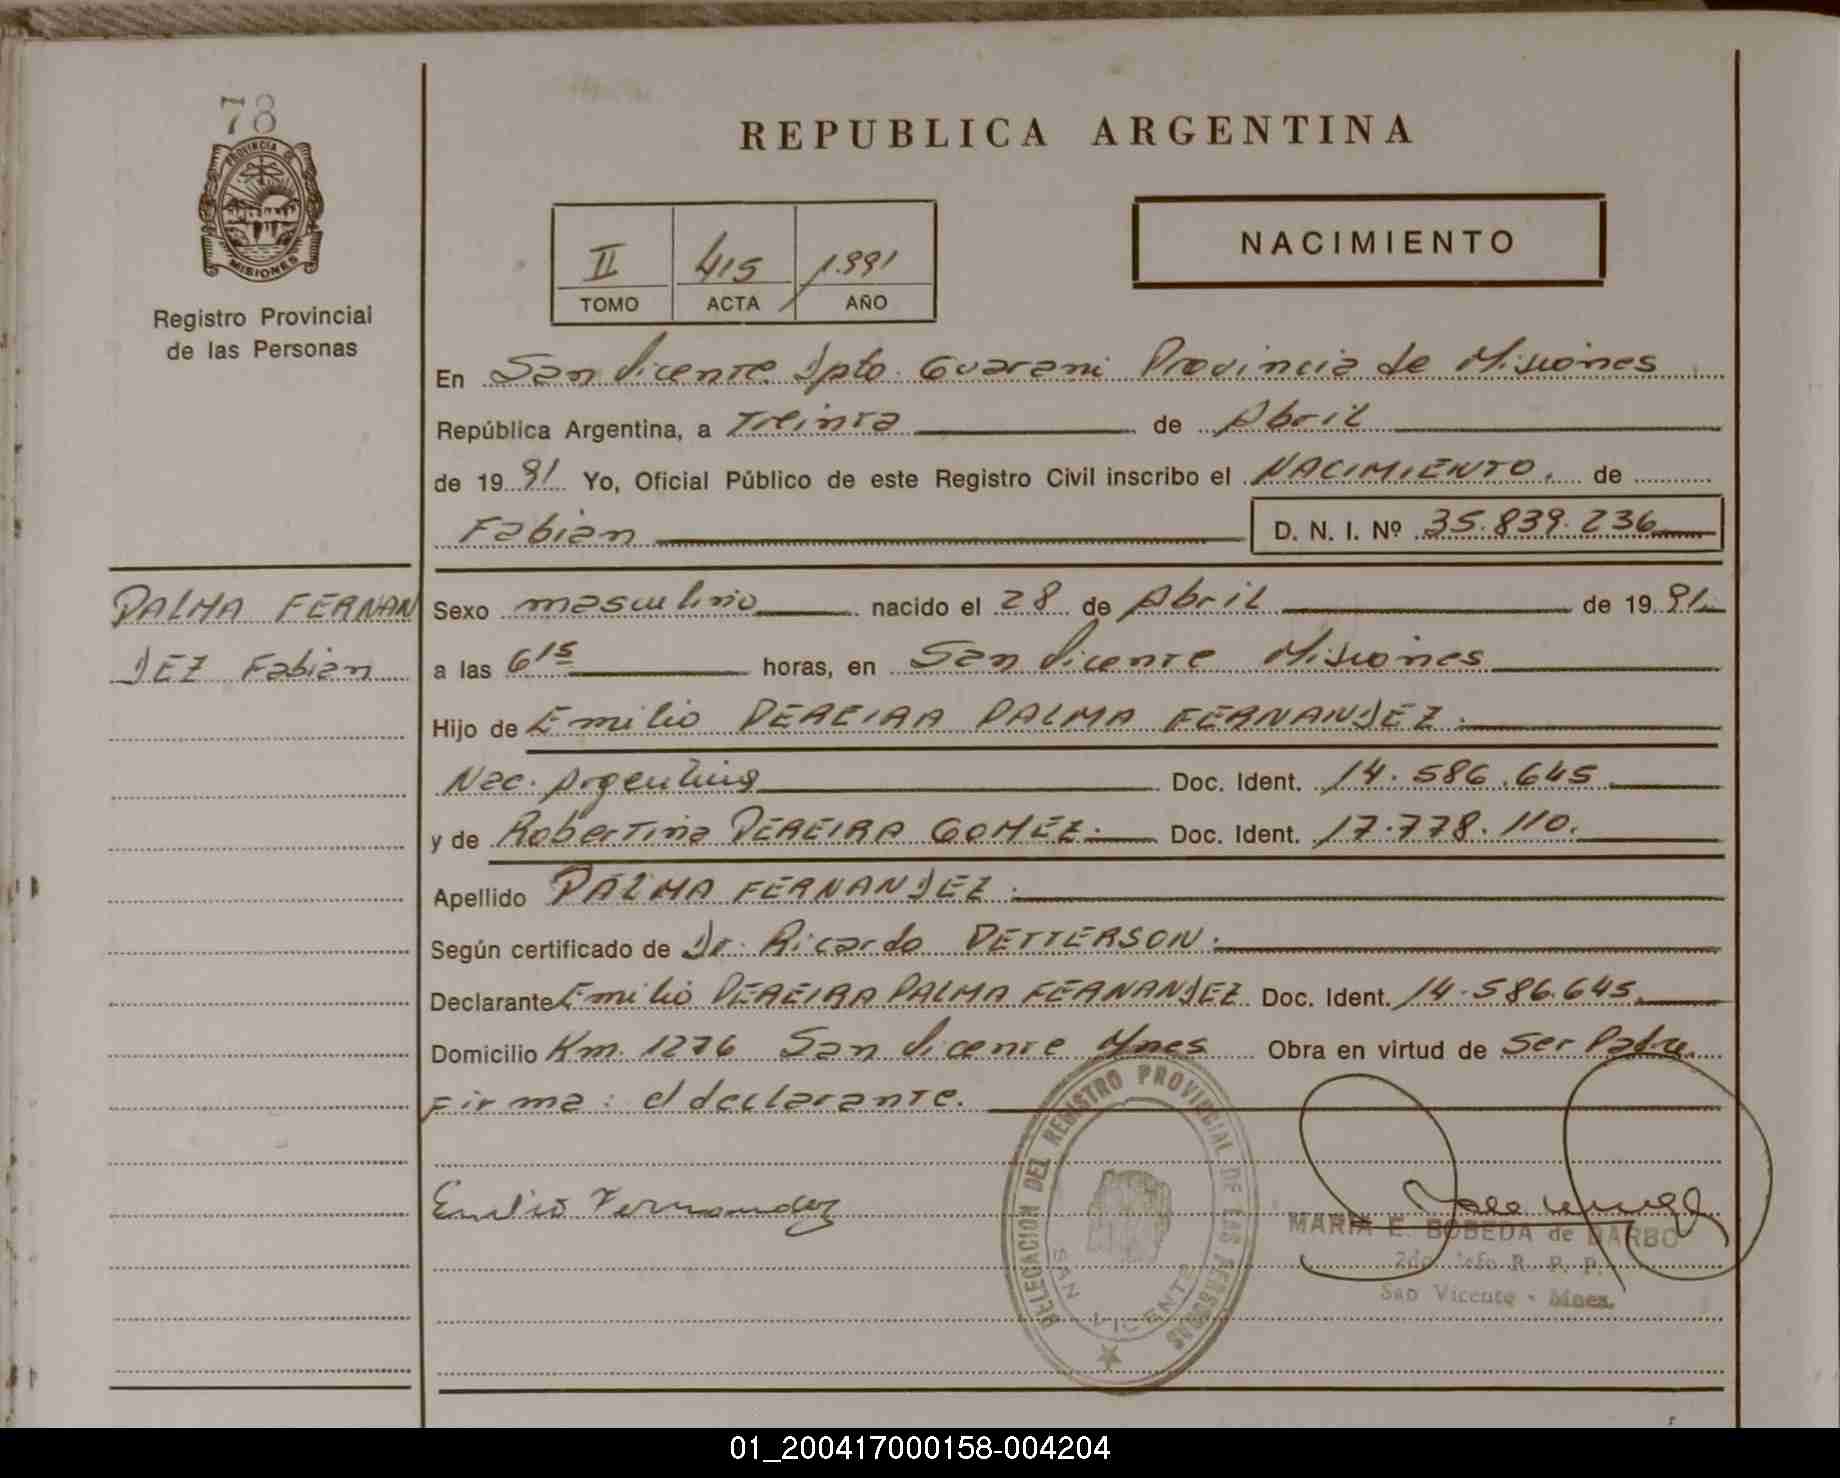 78
PROVINCIA DE
MISIONES
Registro Provincial
de las Personas
REPUBLICA ARGENTINA
II 415 1.991
TOMO ACTA AÑO
NACIMIENTO
En San Vicente Dpto. Guarani Provincia de Misiones
República Argentina, a Treinta de Abril
de 19 91 Yo, Oficial Público de este Registro Civil inscribo el NACIMIENTO. de
Fabian D. N. I. Nº 35.839.236
PALMA FERNAN
DEZ Fabian
Sexo masculino nacido el 28 de Abril de 19 91
a las 6 15 horas, en San Vicente Misiones
Hijo de Emilio PEREIRA PALMA FERNANDEZ.
Nac. Argentina Doc. Ident. 14.586.645
y de Robertina PEREIRA GOMEZ. Doc. Ident. 17.778.110.
Apellido PALMA FERNANDEZ.
Según certificado de Dr. Ricardo PETTERSON.
Declarante Emilio PEREIRA PALMA FERNANDEZ Doc. Ident. 14.586.645.
Domicilio Km. 1276 San Vicente Mnes Obra en virtud de Ser Padre.
Firma: el declarante.
Emilio Fernandez
DELEGACION DEL REGISTRO PROVINCIAL DE LAS PERSONAS
SAN VICENTE
MARIA E. BOBEDA de DARBO
2do. Jefe R. P. P.
San Vicente - Mnes.
01_200417000158-004204